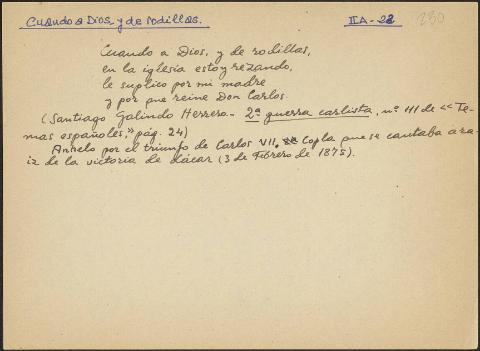 Cuando a Dios, y de rodillas. IIA-22 230
Cuando a Dios, y de rodillas,
en la iglesia estoy rezando,
le suplico por mi madre
y por que reine Don Carlos.
(Santiago Galindo Herrero.- 2ª guerra carlista, nº 111 de «Te-
mas españoles,» pág. 24)
Anhelo por el triunfo de Carlos VII. Copla que se cantaba a ra-
iz de la victoria de Lácar (3 de Febrero de 1875).